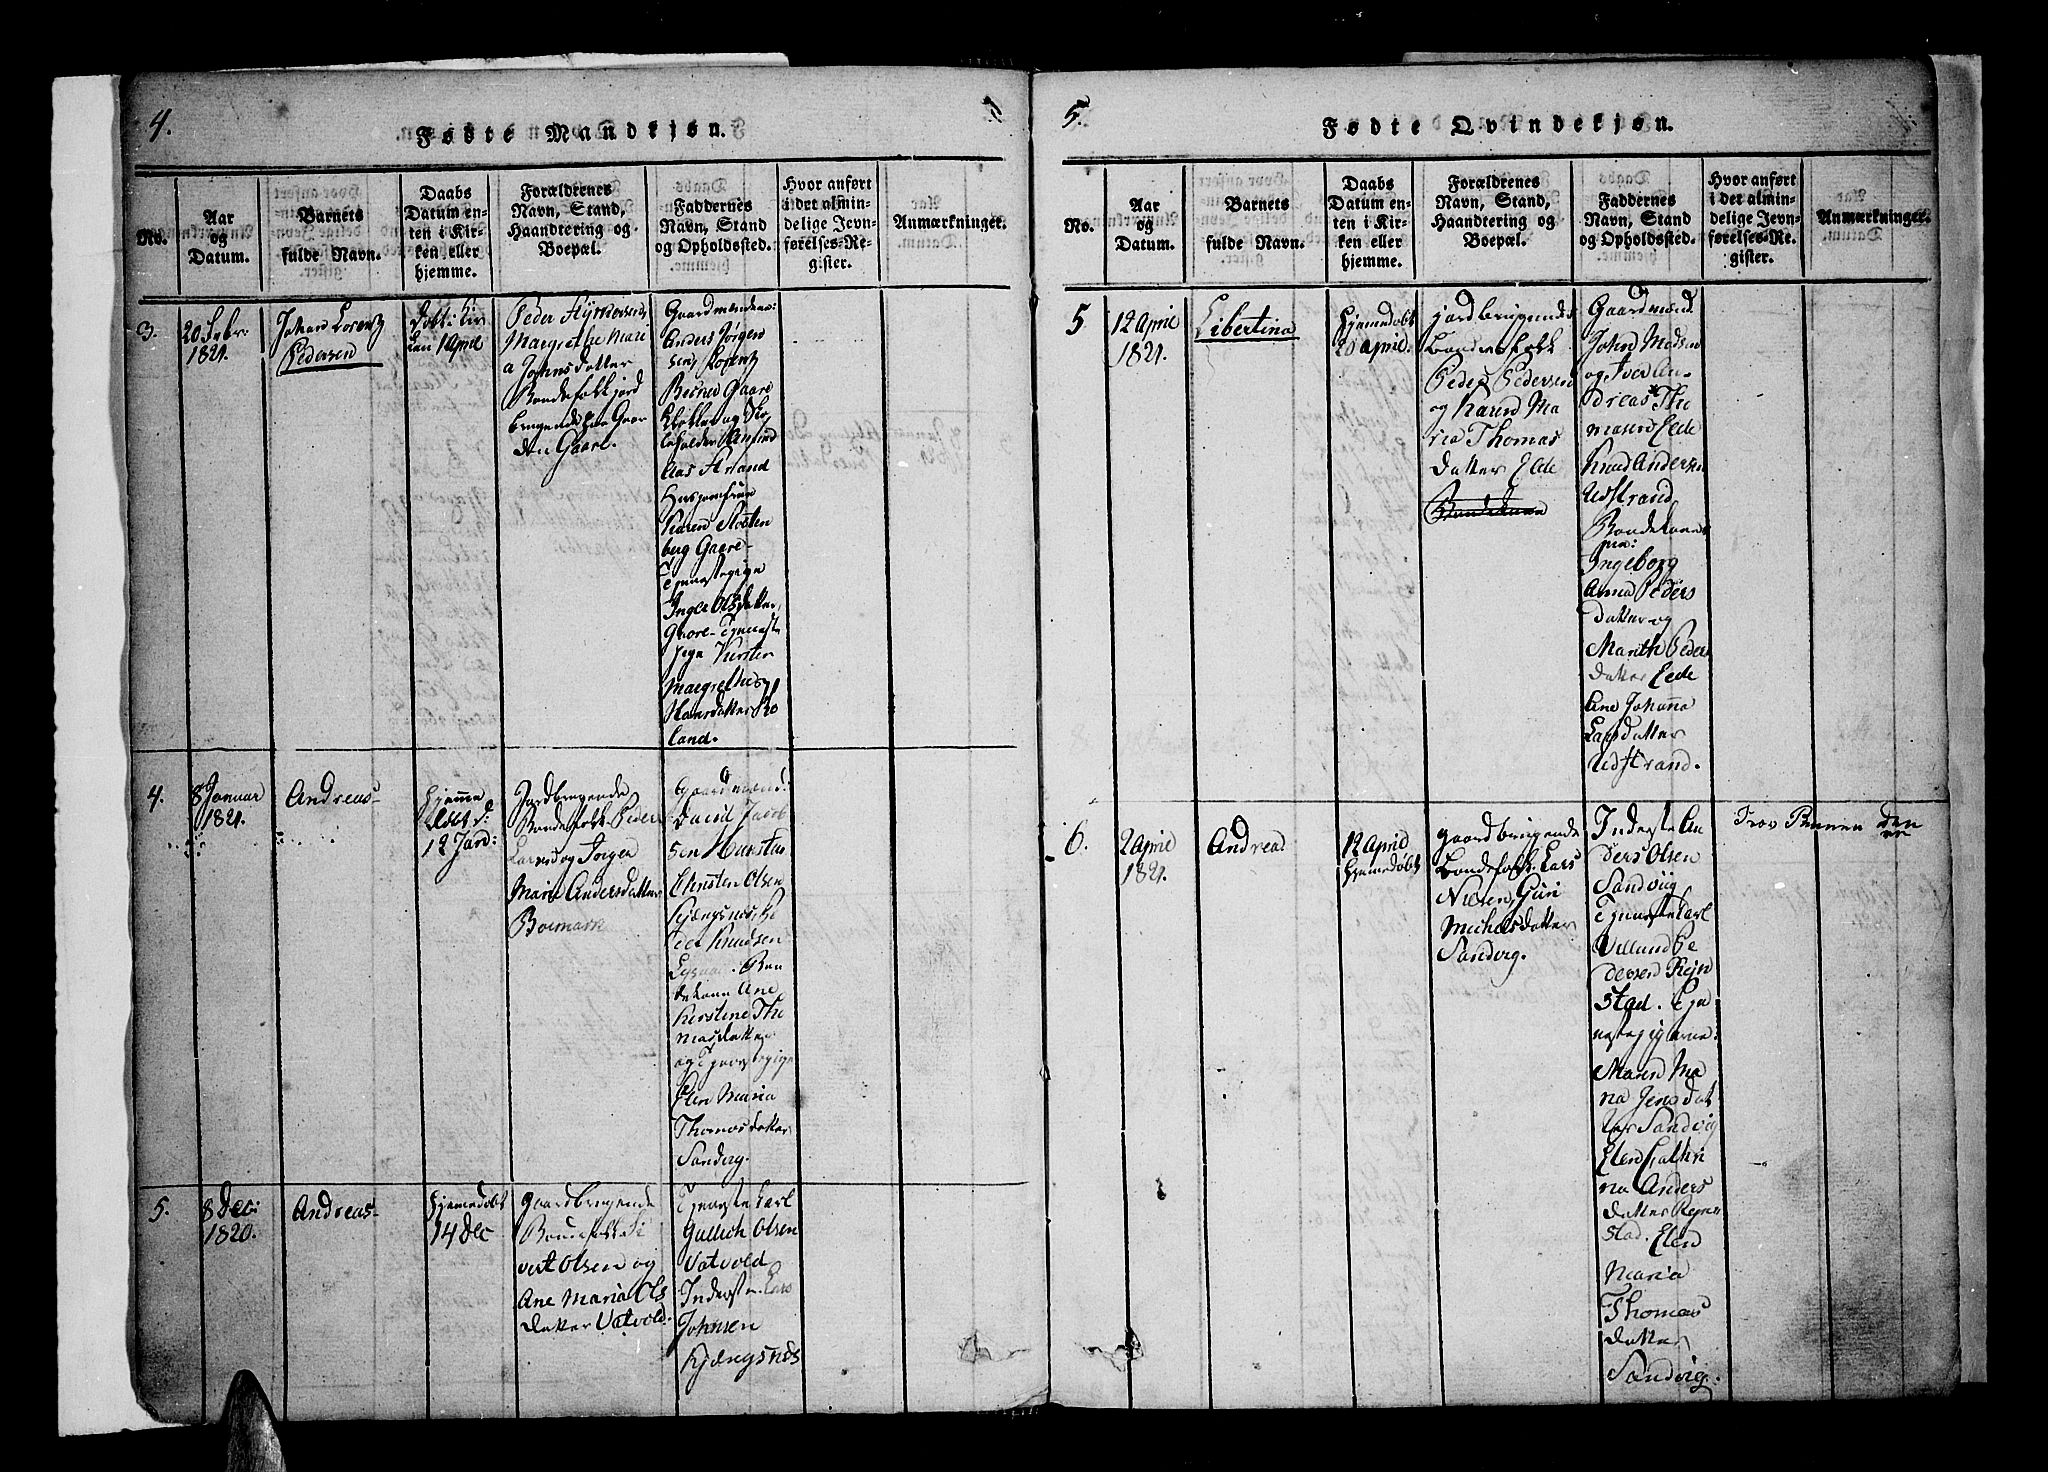 4.
Fødte Mandkjøn.
No.
Aar
og
Datum.
Barnets
fulde Navn.
Daabs
Datum en-
ten i Kir-
ken eller
hjemme.
Forældrenes
Navn, Stand,
Haandtering og
Boepæl.
Faddernes
Navn, Stand
og Opholdssted.
Hvor anført
i det almin-
delige Jevn-
førelses-Re-
gister.
Anmærkninger.
3.
20 Febr:
1821.
Johan Lorentz
Pedersen
Døbt i Kir
ken 1 April
Peder
Margrethe Mari
a Johnsdatter
Bondefolk jord
brugende paa Gaar
den Gaare.
Gaardmændene:
Anders Jørgen
sen, Lorentz
Gaare
Klokker og Sko
leholder
aas Strand
Huusjomfrue
Karen
berg Gaare-
Tjenestepige
Inger Olsdatter
Gaare- Tjenest
pige Kirsten
Margrethe
Hansdatter Ro
land.
4.
8 Januar
1821.
Andreas
Hjemme
døbt d:
12 Jan:
Jordbrugende
Bondefolk Peder
Larsen og Jørgen
Marie Andersdatter
Boemark
Gaardmænd:
David Jacob
sen
Christen Olsen
Kjængsnes, Pe
der Knudsen
Bon
dekone Ane
Kirstine Tho
masdatter
og Tjenestepige
Elen Maria
Thomasdatter
Sandvig.
5.
8 Dec:
1820.
Andreas
Hjemmedøbt
14 Dec
gaardbrugende
Bondefolk Si
vert Olsen og
Ane Maria Ols
datter Vatvold.
Tjenestekarl
Gullich Olsen
Vatvold
Inderst Lars
Johnsen
Kjængsnes
5.
Fødte Qvindekjøn.
No.
Aar
og
Datum.
Barnets
fulde Navn.
Daabs
Datum en-
ten i Kir-
ken eller
hjemme.
Forældrenes
Navn, Stand,
Haandtering og
Boepæl.
Faddernes
Navn, Stand
og Opholdssted.
Hvor anført
i det almin-
delige Jevn-
førelses-Re-
gister.
Anmærkninger.
5
12 April
1821.
Libertina
Hjemmedøbt
20 April.
jordbrugende
Bondefolk
Peder Pedersen
og Karen Ma
ria Thomas
datter Eide
Bondekone
Gaardmænd
John Madsen
og Iver An
dreas Tho
masen Eide
Knud Andersen
Udstrand,
Bondekone
Ingeborg
Anna Peders
datter og
Marith Peders
datter Eide
Ane Johanna
Larsdatter
Udstrand.
6.
2 April
1821.
Andrea
12 April
Hjemmedøbt
gaardbrugende
Bondefolk Lars
Nilsen, Guri
Michelsdatter
Sandvig.
Inderste An
ders Olsen
Sandviig
Tjenestekarl
Villum Pe
dersen Rejn
stad. Tjen
estepigerne:
Maren Ma
ria Jensdat
ter Sandvig
Elen Cathri
na Anders
datter Rejn
stad. Elen
Maria
Thomas
datter
Sandvig.